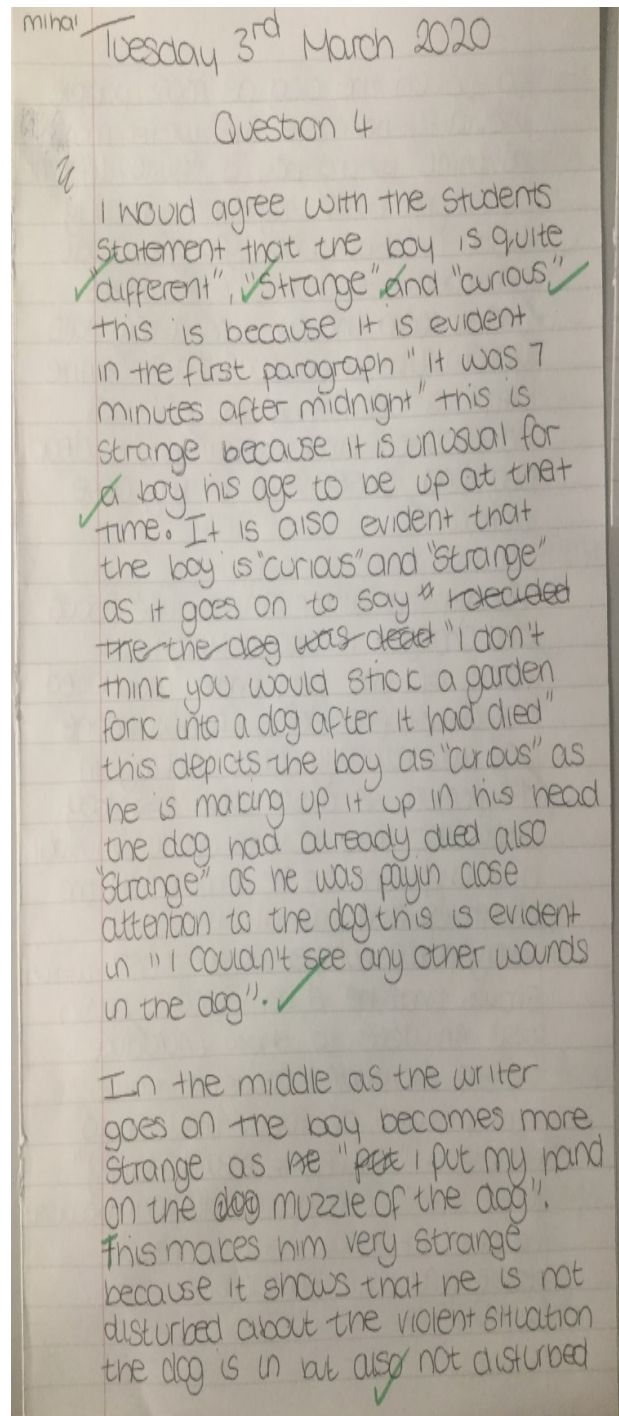 mihai
Tuesday 3rd March 2020
Question 4
I would agree with the students
statement that the boy is quite
different", "strange" and "curious"
this is because it is evident
in the first paragraph "it was 7
minutes after midnight" this is
strange because it is unusual for
a boy his age to be up at that
time. It is also evident that
the boy is "curious" and "strange"
as it goes on to say " I decided
the the dog was dead "I don't
think you would stick a garden
fork into a dog after it had died"
this depicts the boy as "curious" as
he is making up it up in his head
the dog had already died also
"strange" as he was payin close
attention to the dog this is evident
in "I couldn't see any other wounds
in the dog".
In the middle as the writer
goes on the boy becomes more
strange as he "put I put my hand
on the dog muzzle of the dog".
This makes him very strange
because it shows that he is not
disturbed about the violent situation
the dog is in but also not disturbed